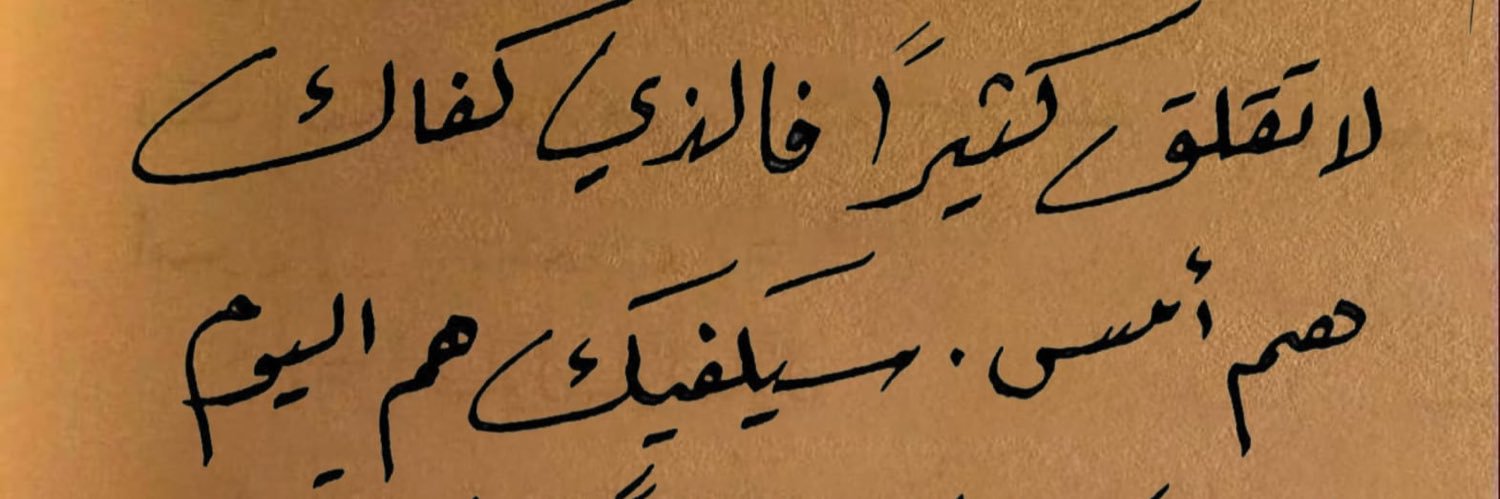 لا تقلق كثيرًا فالذي كفاك
هم أمس . سيكفيك هم اليوم